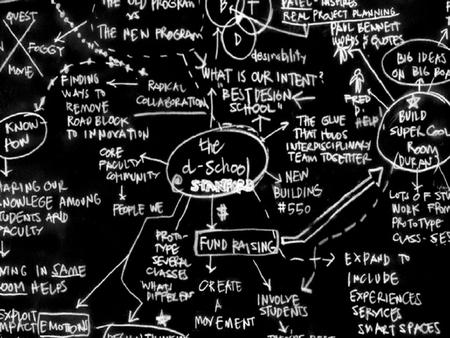 THE OLD PROGRAM
VS
THE NEW PROGRAM
QUEST
FOGGY
MOVIE
B
T
D
desirability
REAL PROJECT PLANNING
PAUL BENNETT
WORDS & QUOTES
BIG IDEAS
ON BIG
FINDING
WAYS TO
REMOVE
ROAD BLOCK
TO INNOVATION
RADICAL
COLLABORATION
WHAT IS OUR INTENT?
"BEST DESIGN
SCHOOL"
FRED
HELP
BUILD
SUPER COOL
ROOM
(DURAN)
THE GLUE
THAT HOLDS
INTERDISCIPLINARY
TEAM TOGETHER
KNOW
HOW
the
d-School
@ STANFORD
CORE
FACULTY
COMMUNITY
PEOPLE WE
NEW
BUILDING
#550
SHARING OUR
KNOWLEGE AMONG
STUDENTS AND
FACULTY
LOTS OF
WORK FROM
PROTOTYPE
CLASS
$
FUND RAISING
PROTO-
TYPE
SEVERAL
CLASSES
WHAT'S
DIFFERENT
IN SAME
ROOM HELPS
CREATE
A
MOVEMENT
INVOLVE
STUDENTS
EXPAND TO
INCLUDE
EXPERIENCES
SERVICES
SMART SPACES
EXPLOIT
IMPACT
EMOTION